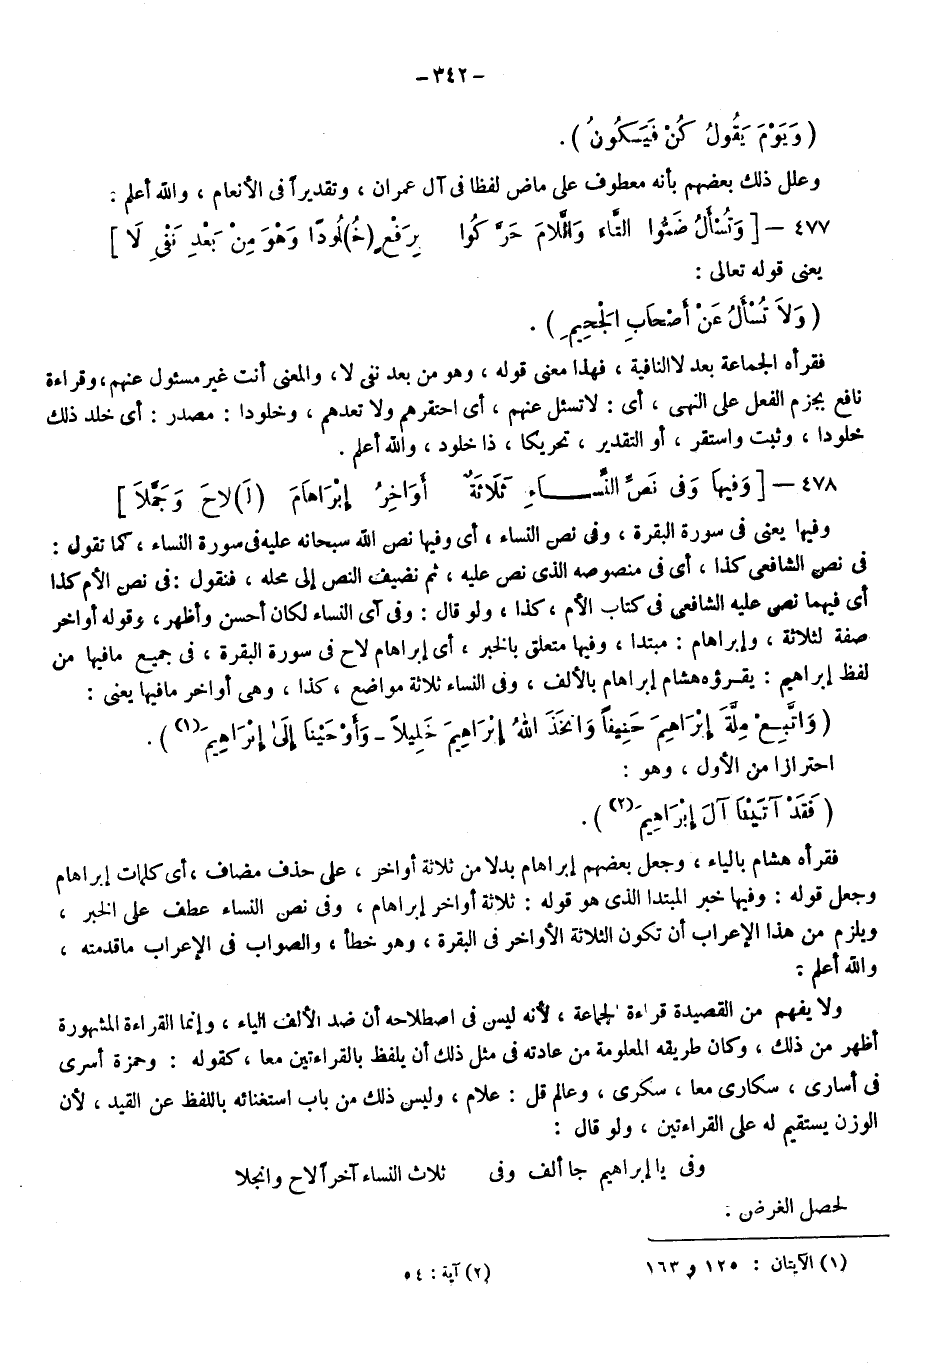 -٣٤٢-
( وَيَوْمَ يَقُولُ كُنْ فَيَكُونُ ) .
وعلل ذلك بعضهم بأنه معطوف على ماض لفظا فى آل عمران ، وتقديراً فى الأنعام ، والله أعلم :
٤٧٧ - [ وَتُسْأَلُ ضَمُّوا التَّاءَ وَالَّلامَ حَرَّ كُوا بِرَفْعٍ (خُ)لُودًا وَهْوَ مِنْ بَعْدِ نَفْىِ لَا ]
يعنى قوله تعالى :
( وَلاَ تُسْأَلُ عَنْ أَصْحَابِ الجَحِيمِ ) .
فقرأه الجماعة بعد لا النافية ، فهذا معنى قوله ، وهو من بعد نفى لا ، والمعنى أنت غير مسئول عنهم ، وقراءة
نافع بجزم الفعل على النهى ، أى : لا تسئل عنهم ، أى احتقرهم ولا تعدهم ، وخلودا : مصدر : أى خلد ذلك
خلودا ، وثبت واستقر ، أو التقدير ، تحريكا ، ذا خلود ، والله أعلم .
٤٧٨ - [ وَفِيهَا وَفى نَصِّ النِّسَـــاءِ ثَلَاثَةٌ أَوَاخِرُ إِبْرَاهَامَ (لَ)لاحَ وَجَمَّلاَ ]
وفيها يعنى فى سورة البقرة ، وفى نص النساء ، أى وفيها نص الله سبحانه عليه فى سورة النساء ، كما تقول :
فى نص الشافعى كذا ، أى فى منصوصه الذى نص عليه ، ثم نضيف النص إلى محله ، فنقول : فى نص الأم كذا
أى فيما نص عليه الشافعى فى كتاب الأم ، كذا ، ولو قال : وفى آى النساء لكان أحسن وأظهر ، وقوله أواخر
صفة لثلاثة ، وإبراهام : مبتدا ، وفيها متعلق بالخبر ، أى إبراهام لاح فى سورة البقرة ، فى جميع مافيها من
لفظ إبراهيم : يقرؤه هشام إبراهام بالألف ، وفى النساء ثلاثة مواضع ، كذا ، وهى أواخر مافيها يعنى :
( وَاتَّبِعْ مِلَّةَ إِبْرَاهِيمَ حَنِيفاً وَاتَّخَذَ اللهُ إِبْرَاهِيمَ خَلِيلاً - وَأَوْحَيْنَا إِلَى إِبْرَاهِيمَ (١) ) .
احترازا من الأول ، وهو :
( فَقَدْ آتَيْنَا آلَ إِبْرَاهِيمَ (٢) ) .
فقرأه هشام بالياء ، وجعل بعضهم إبراهام بدلا من ثلاثة أواخر ، على حذف مضاف ، أى كلمات إبراهام
وجعل قوله : وفيها خبر المبتدا الذى هو قوله : ثلاثة أواخر إبراهام ، وفى نص النساء عطف على الخبر ،
ويلزم من هذا الإعراب أن تكون الثلاثة الأواخر فى البقرة ، وهو خطأ ، والصواب فى الإعراب ماقدمته ،
والله أعلم :
ولا يفهم من القصيدة قراءة الجماعة ، لأنه ليس فى اصطلاحه أن ضد الألف الياء ، وإنما القراءة المشهورة
أظهر من ذلك ، وكان طريقه المعلومة من عادته فى مثل ذلك أن يلفظ بالقراءتين معا ، كقوله : وحمزة أسرى
فى أسارى ، سكارى معا ، سكرى ، وعالم قل : علام ، وليس ذلك من باب استغنائه باللفظ عن القيد ، لأن
الوزن يستقيم له على القراءتين ، ولو قال :
وفى يا إبراهيم جا ألف وفى ثلاث النساء آخر آلاح وانجلا
لحصل الغرض :
(١) الآيتان : ١٢٥ و ١٦٣ (٢) آية : ٥٤